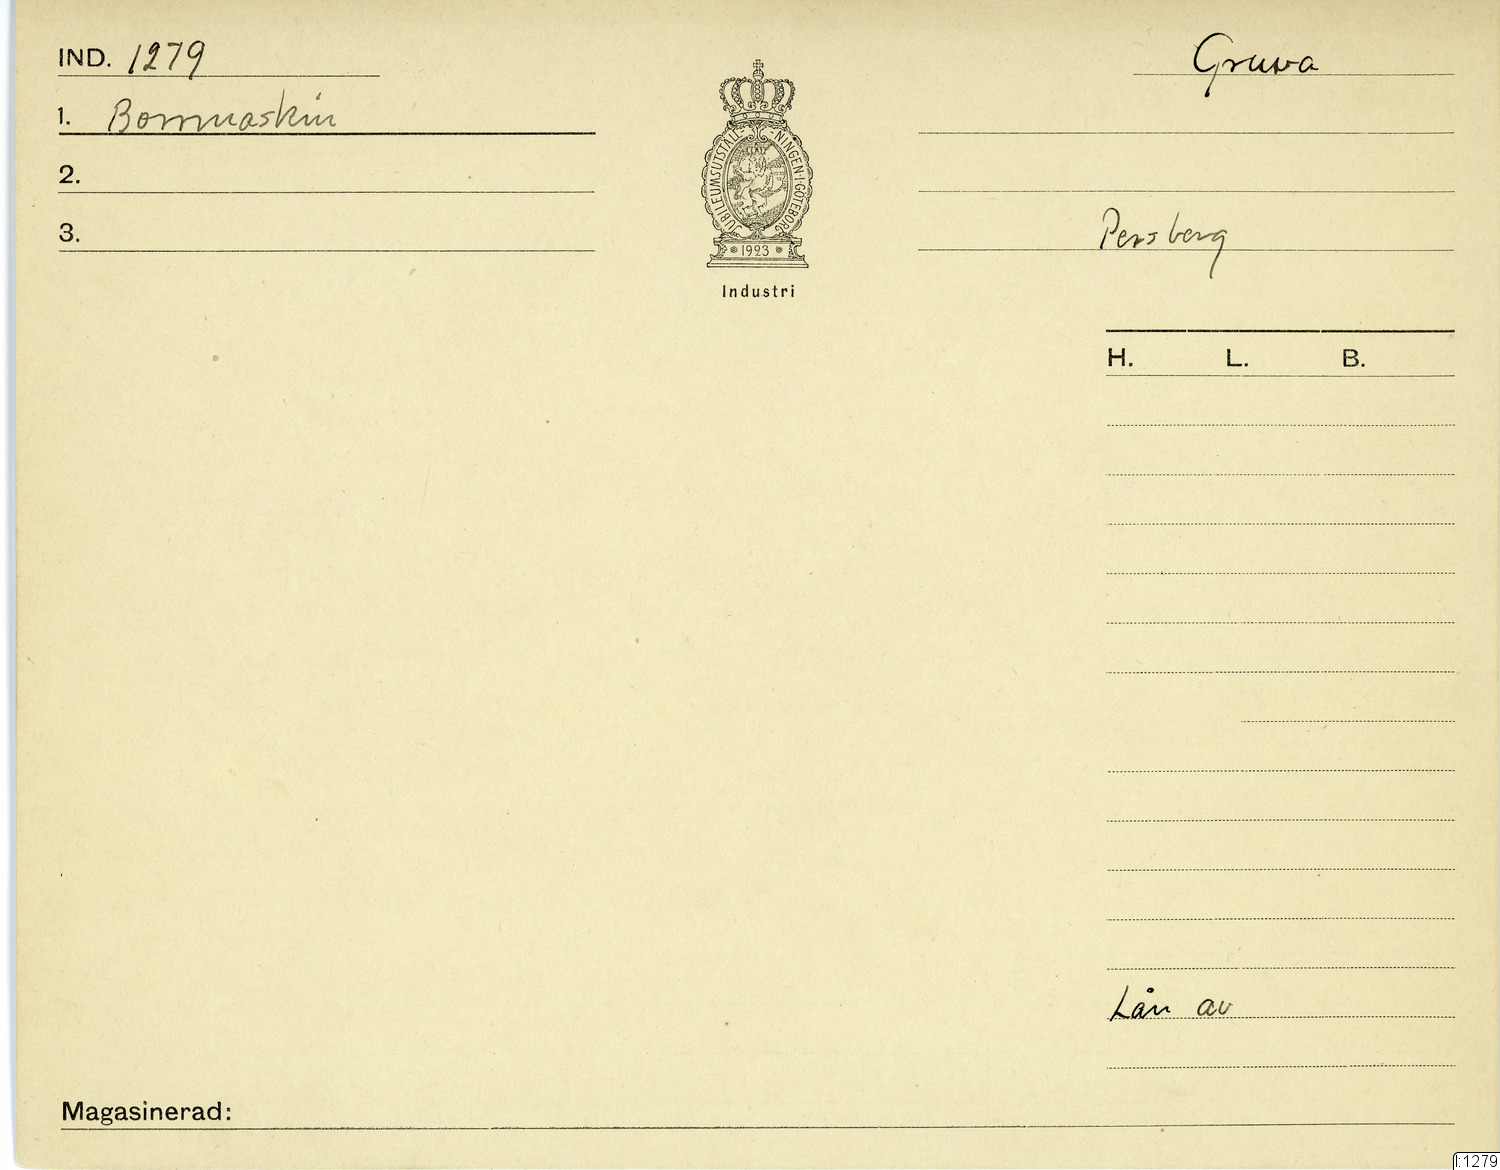 IND. 1279
Gruva
1. Borrmaskin
2.
3.
JUBILEUMSUTSTÄLL-NINGEN·I·GÖTEBORG
1923
Industri
Persberg
H. L. B.
Lån av
Magasinerad:
I:1279